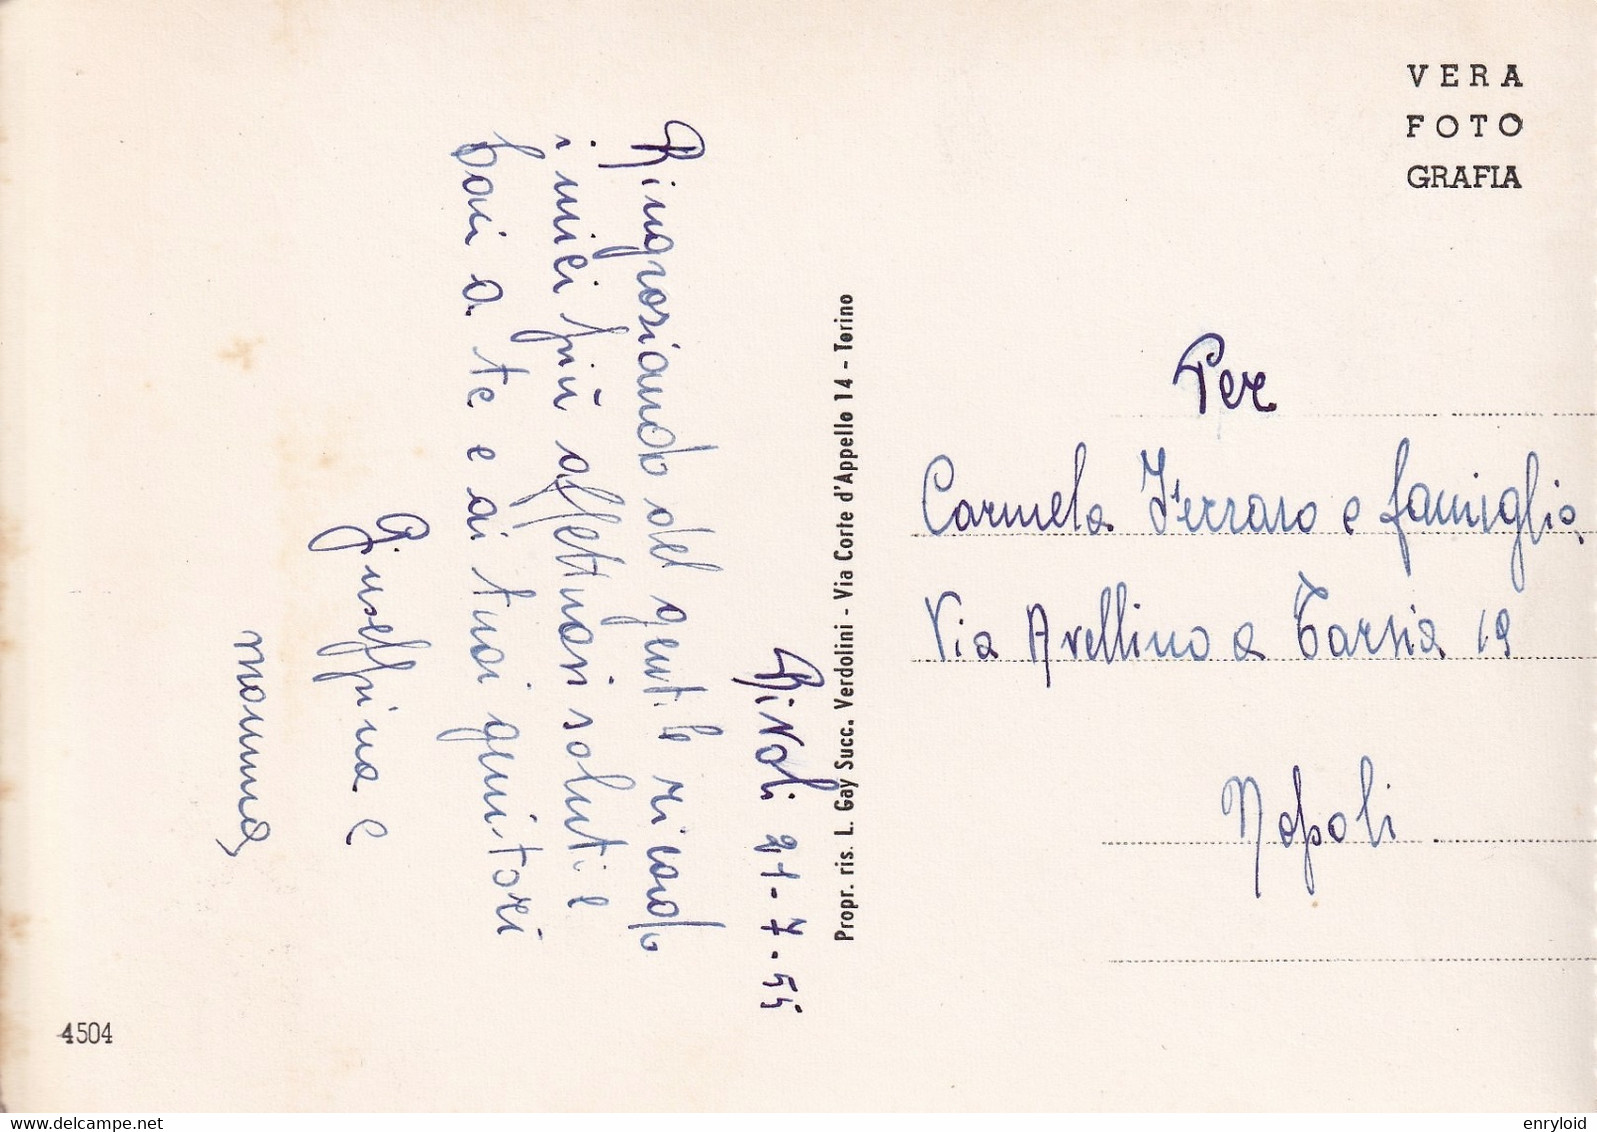 Rivoli 21-7-55
Ringraziando del gentile ricordo
i miei più affettuosi saluti e
baci a te e ai tuoi genitori
Giuseppina e
mamma
Propr. ris. L. Gay Succ. Verdolini - Via Corte d'Appello 14 - Torino
VERA
FOTO
GRAFIA
Per
Carmela Ferraro e famiglia
Via Avellino a Tarsia 19
Napoli
4504
delcampe.net
enryloid